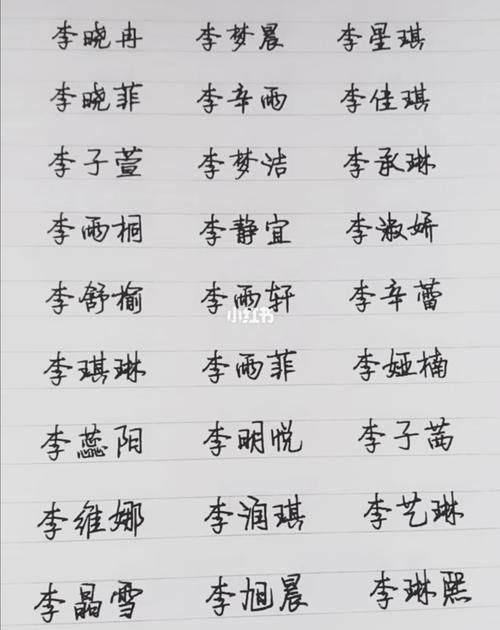 李晓冉 李梦晨 李星琪
李晓菲 李辛雨 李佳琪
李子萱 李梦洁 李承琳
李雨桐 李静宜 李淑妍
李舒榆 李雨轩 李辛蕾
小红书
李琪琳 李雨菲 李娅楠
李蕊阳 李明悦 李子茜
李维娜 李润琪 李艺琳
李晶雪 李旭晨 李琳熙